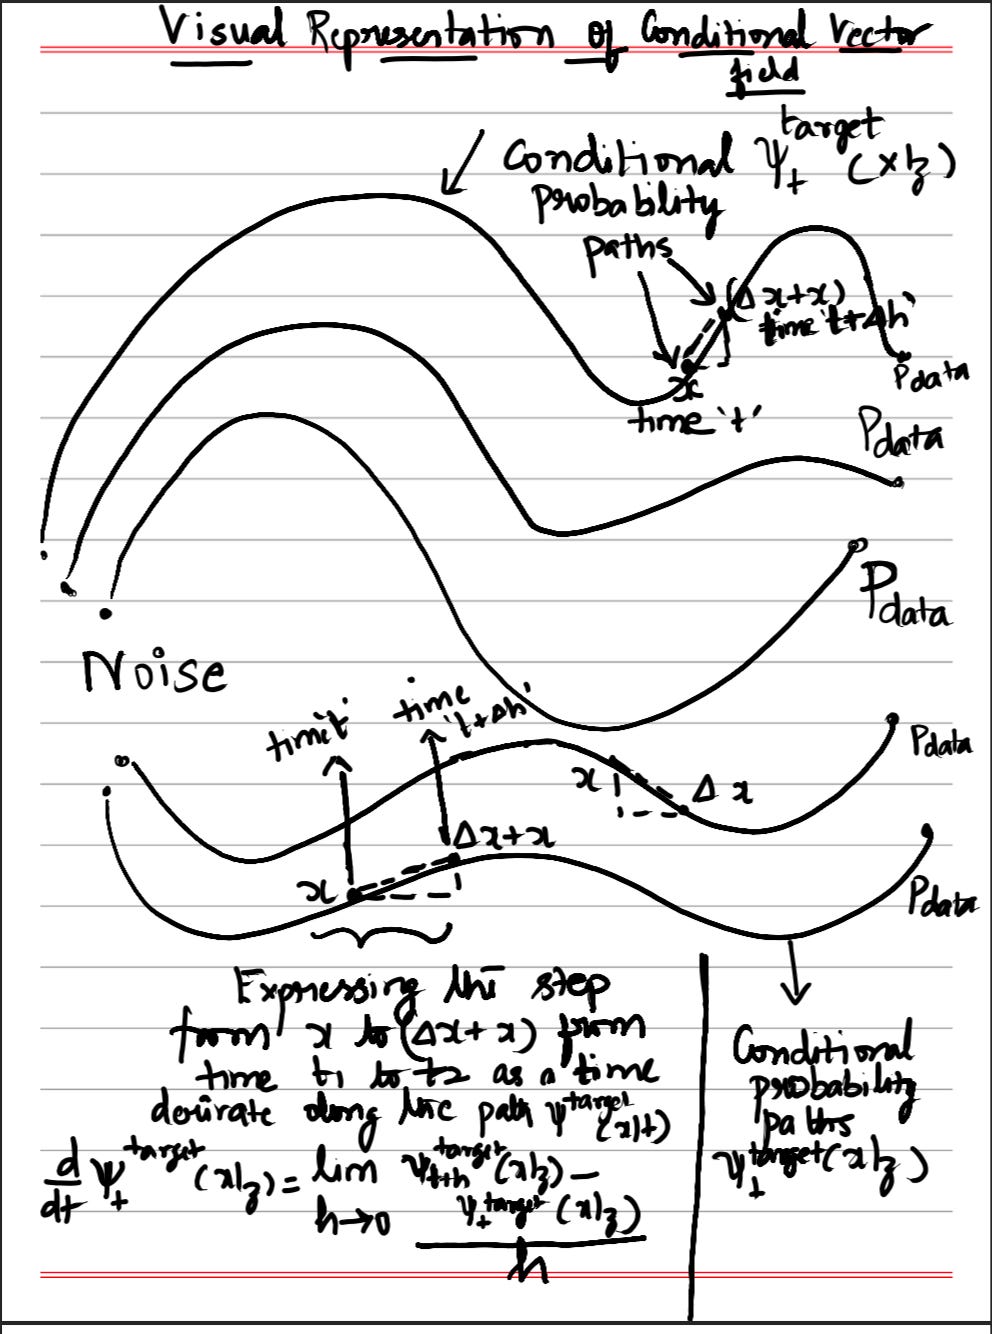 Visual Representation of Conditional Vector
field
Conditional ψₜ^target (x|z)
probability
paths
(Δx+x)
time 't+Δh'
x
time 't'
Pdata
Pdata
Pdata
Noise
time 't'
time
't+Δh'
Pdata
x
Δx
Δx+x
x
Pdata
Expressing the step
from x to (Δx+x) from
time t1 to t2 as a time
derivate along the path ψ^target (x|t)
d/dt ψₜ^target (x|z) = lim h→0 ψₜ₊ₕ^target (x|z) – ψₜ^target (x|z) / h
Conditional
probability
paths
ψₜ^target (x|z)